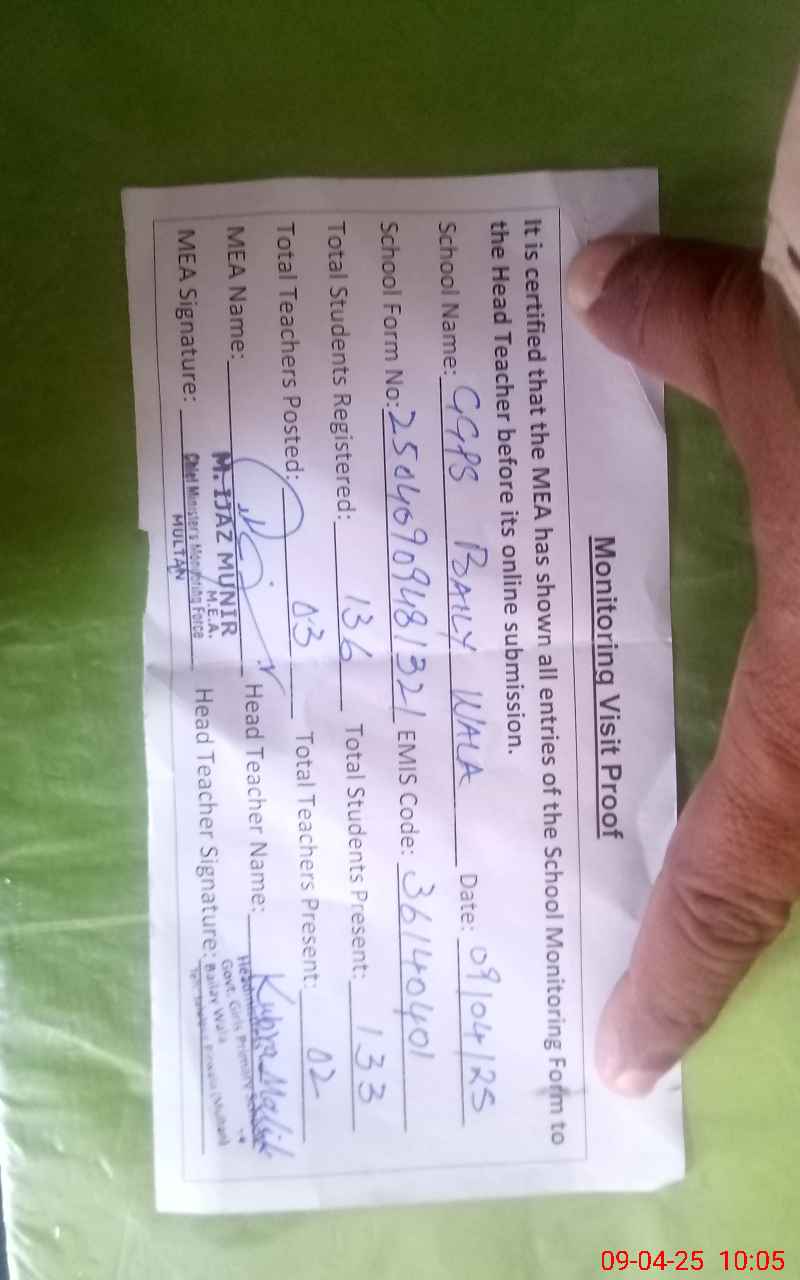 Monitoring Visit Proof
It is certified that the MEA has shown all entries of the School Monitoring Form to
the Head Teacher before its online submission.
School Name: GGPS BAILY WALA Date: 09/04/25
School Form No: 25040909481321 EMIS Code: 36140401
Total Students Registered: 136 Total Students Present: 133
Total Teachers Posted: 03 Total Teachers Present: 02
MEA Name: M. IJAZ MUNIR Head Teacher Name: Kubra Malik
M.E.A.
MEA Signature: Chief Minister's Monitoring Force Head Teacher Signature:
MULTAN
Govt. Girls Primary
Bailay Wala
09-04-25 10:05